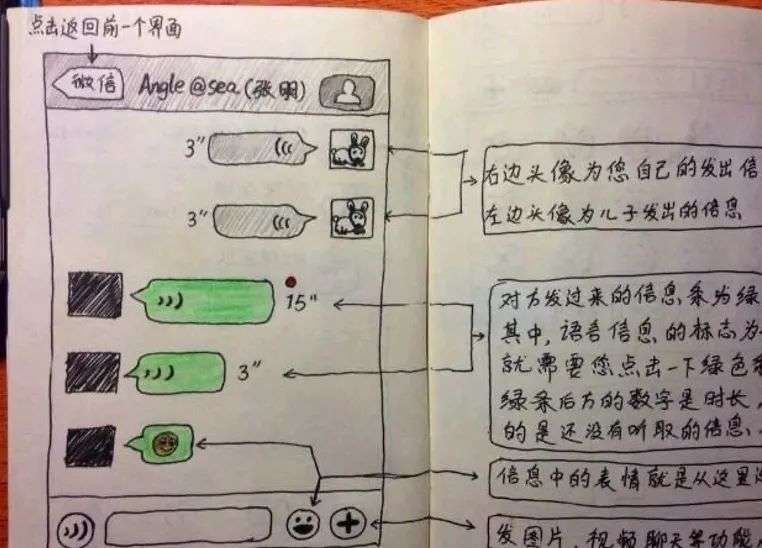 点击返回前一个界面
微信 Angle@sea(张明)
3"
3"
15"
3"
右边头像为您自己的发出信
左边头像为儿子发出的信息
对方发过来的信息条为绿
其中,语音信息的标志为
就需要您点击一下绿色
绿条后方的数字是时长,
的是还没有听取的信息、
信息中的表情就是从这里
发图片,视频聊天等功能